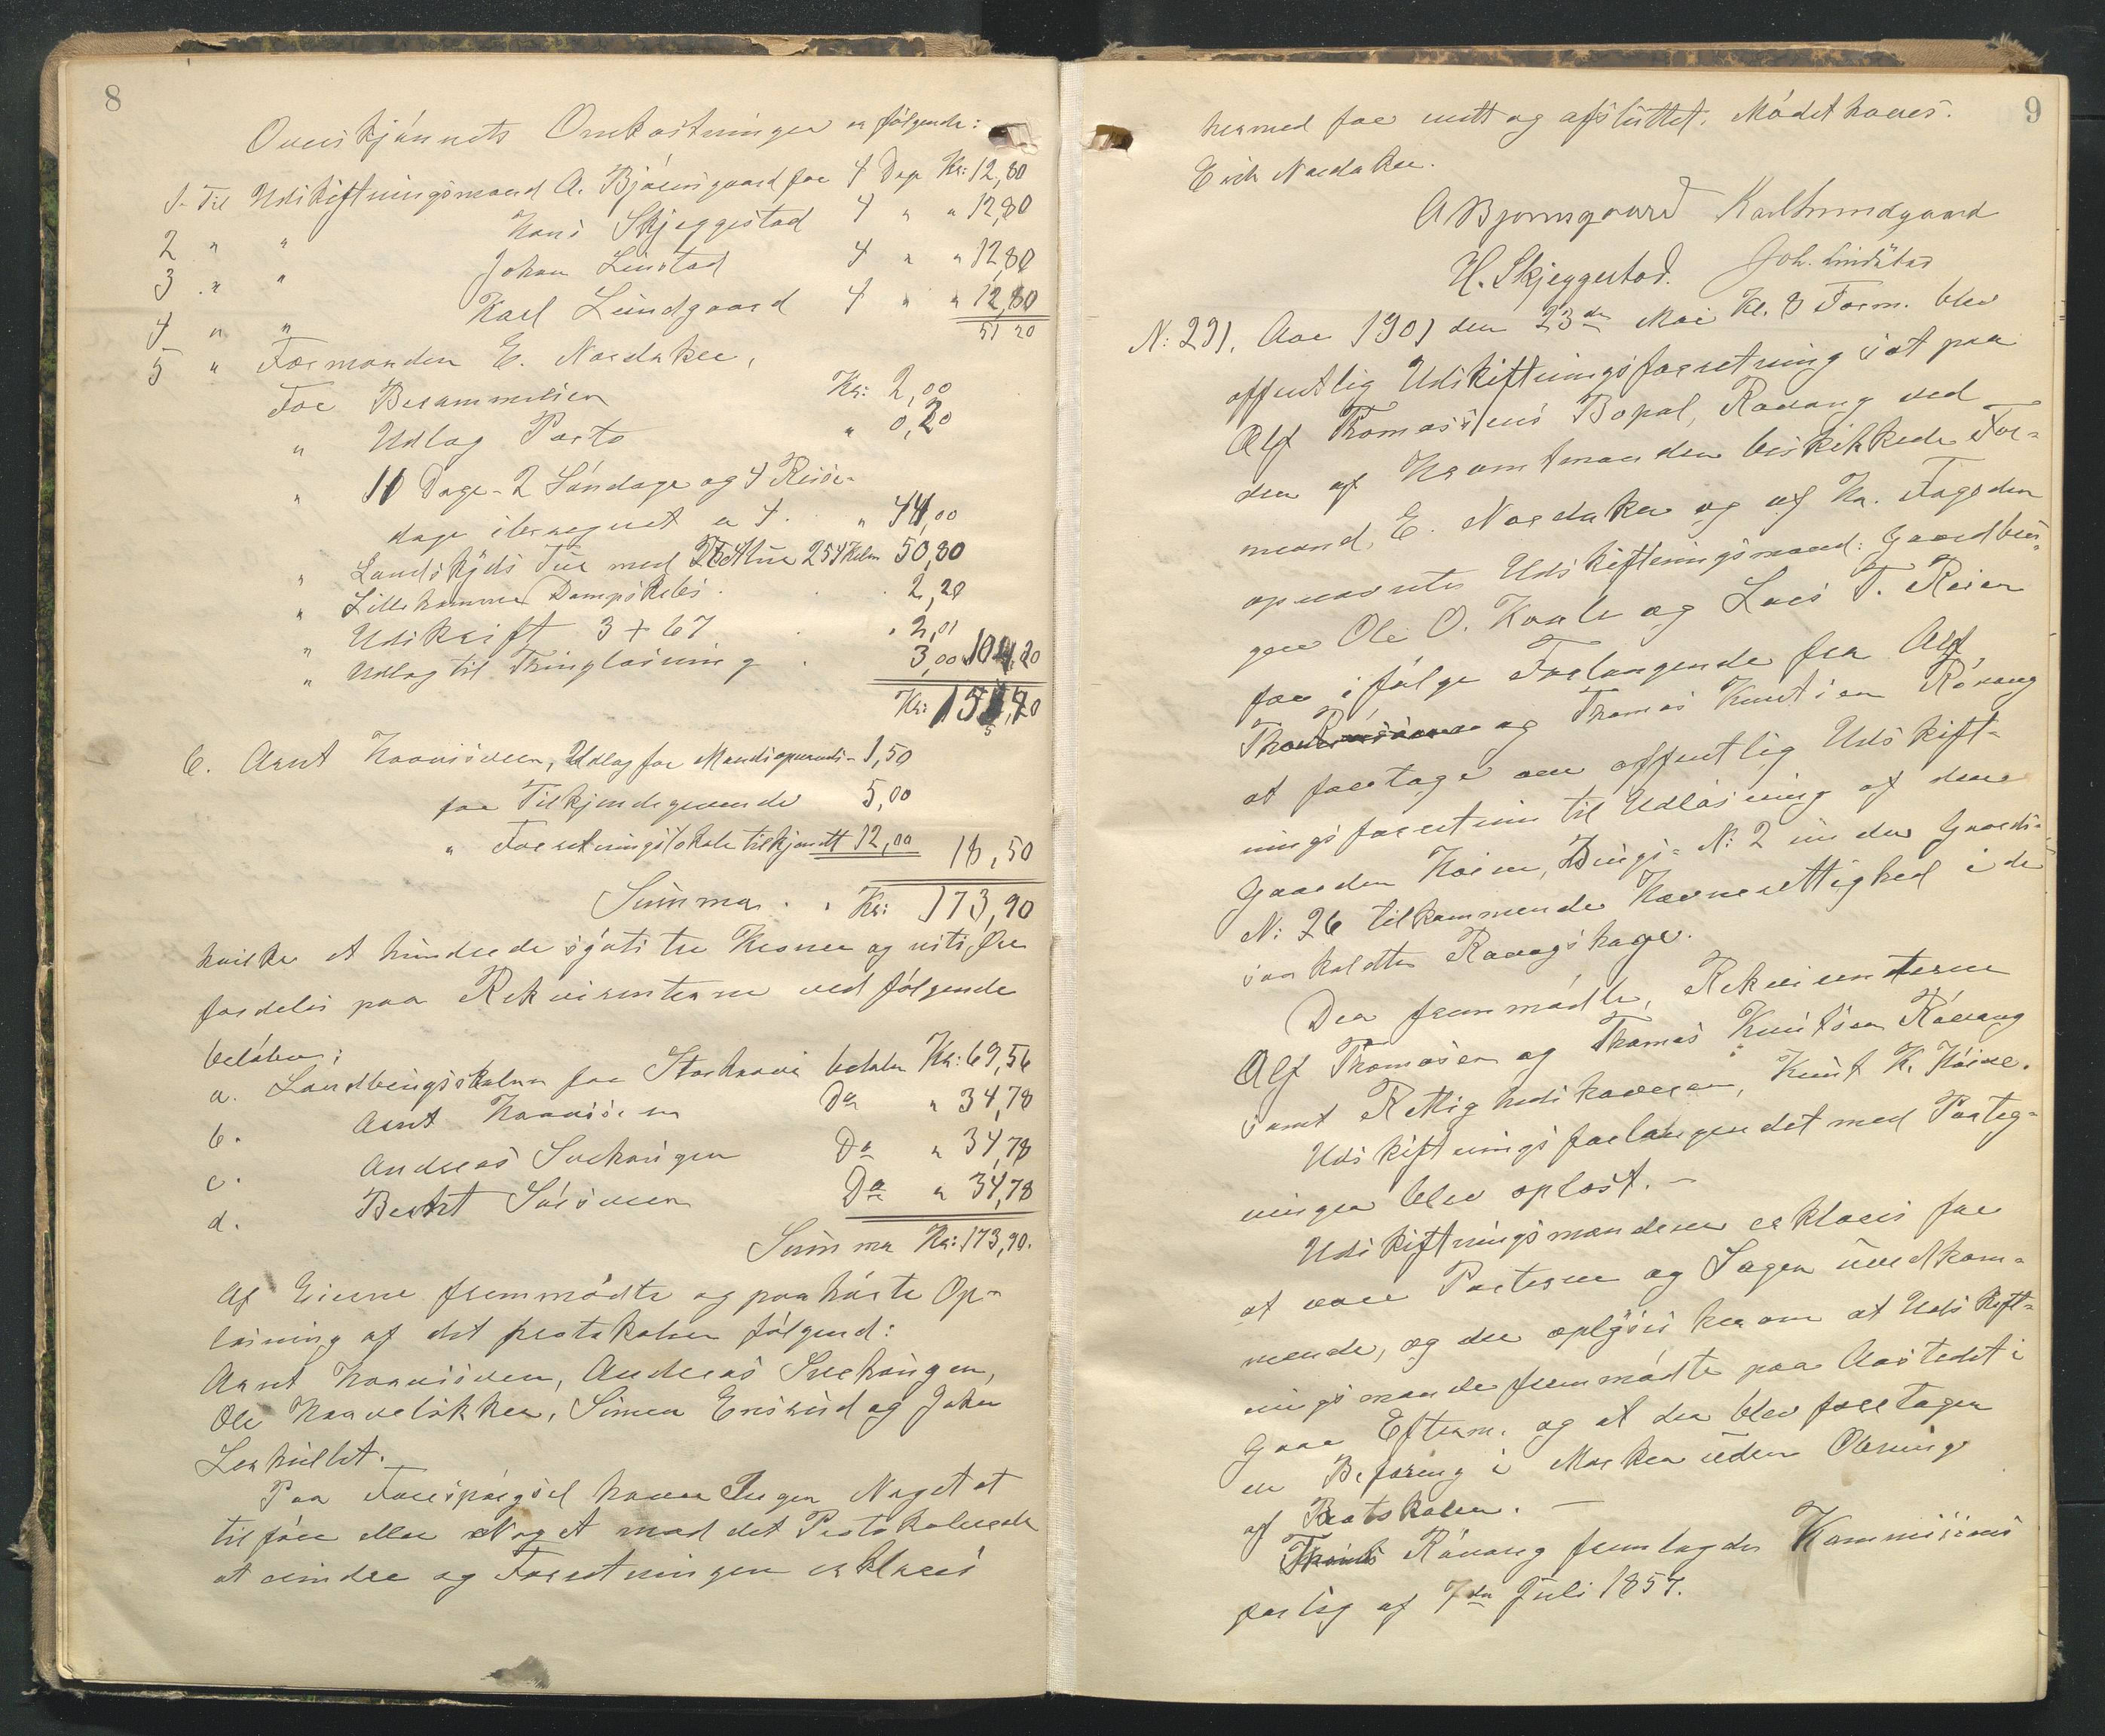 8
Overskjönnets Omkostninger er fölgende:
1. Til Udskiftningsmand A. Bjørnsgaard for 4 Dage Kr: 12,80
2 " " Hans Skjeggestad 4 " " 12,80
3 " " Johan Linstad 4 " " 12,80
4 " " Karl Lundgaard 4 " " 12,80
51 20
5 " Formanden E. Nordaker,
For Berammelsen Kr: 2,00
" Udlag Porto " 0,20
" 11 Dage - 2 Söndage og 4 Reise-
dage iberegnet a 4. " 44,00
" Landskyds Tur med Retur 254 Kelm 50,80
" Lillehammer Dampskibs . . 2,20
" Udskrift 3 + 67 . " 2,01
" Udlag til Tinglæsning . 3,00 104,20
Kr: 155,40
6. Arnt Haavisveen, Udlag for Mandsopnævnelse 1,50
for Tilkjendegivende 5,00
" Forretningslokale tilkjendt 12,00 18,50
Summa . . Kr: 173,90
hvilke et hundrede sÿtti tre Kroner og nitti Øre
fordeles paa Rekvirenterne ved fölgende
belöben:
a. Landbrugsskolen for Storhove betaler Kr: 69,56
b. Arnt Haavisveen Do " 34,78
c. Andreas Suckangen Do " 34,78
d. Berthet Sörsveen Do " 34,78
Summa Kr: 173,90.
Af Eierne fremmödte og paahörte Op-
læsning af det protokolerte fölgend:
Arnt Haavisveen, Andreas Suckangen,
Ole Haavelökken, Simen Ensrud og Johan
Paa Forespörgsel havde Ingen Noget at
tilföre eller Noget mod det Protokolerede
at erindre og Forretningen erklæres
9
hermed for endt og afsluttet. Mödet hæves.
Erich Nordaker.
A Bjørnsgaard Karl Lundgaard
H. Skjeggestad. Joh. Lindstad
N: 291. Aar 1901 den 23de Mai Kl. 8 Form. blev
offentlig Udskiftningsforretning sat paa
Alf Thomassens Bopæl, Ravang ved
den af Hr amtmanden beskikkede For-
mand, E. Nordaker og af Hr. Fogeden
opnævnte Udskiftningsmænd: Gaardbru-
gere Ole O. Kvale og Lars T. Reien
for i fölge Forlangende fra Alf
og Thomas Knutsen Rövang
at foretage en offentlig Udskift-
ningsforretnin til Udlösning af den
Gaarden Höine, Brugs- N: 2 under Gaards-
N: 26 tilkommende Havnerettighed i de
saakaldte Ravngshage.
Der fremmödte, Rekvirenterne
Alf Thomasen og Thomas Knutsen Rövang
samt Rettighedshaveren, Knut K. Höine.
Udskiftningsforlangendet med Pateg-
ninger blev oplæst. –
Udskiftningsmændene erklæres for
at være Parterne og Sagen uvedkom-
mende, og der oplÿses herom at Udskift-
ningsmænde fremmödte paa Aastedet i
Gaar Efterm. og at der blev foretagen
en Befaring i Marken uden Aabning
af Protokolen. –
Thomas Rövang fremlagde Kommissions
forlig af 7de Juli 1857.